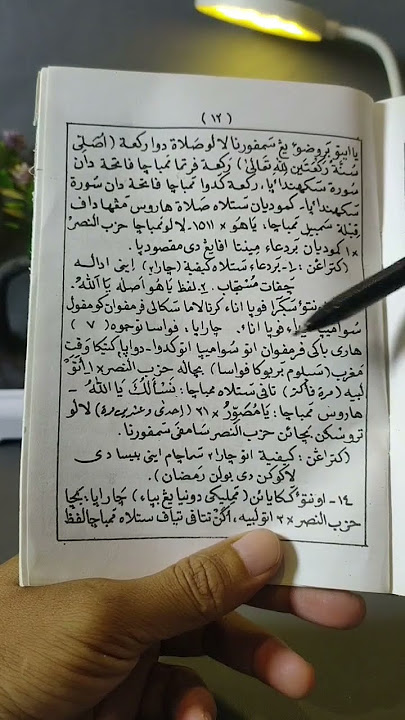 ( ١٢ )
يا ايتو بروضوء يڠ سمفورنا لالو صلاة دوا ركعة ( اُصَلِّى
سُنَّةً رَكْعَتَيْنِ لِلّٰهِ تَعَالَىٰ ) ركعة فرتما ممباچا فاتحة دان
سورة سكهنداڽا، ركعة كدوا ممباچا فاتحة دان سورة
سكهنداڽا. كموديان ستلاه صلاة هاروس مڠهادف
قبلة سمبيل ممباچا، ياهو × ١٥١١. لالو ممباچا حزب النصر
× ١ كوديان بردعاء مينتا افايڠ دى مقصوديا.
(كتراڠن: ١. بردعاء ستلاه كيفية (چارا٢) اينى اداله
چفات مستجاب. ٢. لفظ ياهو اصله يَا اَللّٰهُ.
اونتوء سكرا فويا اناء كرنا لاما سكالى فرمفوان كومفول
سواميڽا فويا انا٠. چاراڽا. فواسا نوجوه ( ٧ )
هارى باكى فرمفوان اتو سواميڽا اتو كدوا-دواڽا كتيكا وقت
مغرب (سبلوم بربوكا فواسا) بچاله حزب النصر × ١ اتو
لبيه تافى ستلاه ممباچا: نَسْأَلُكَ يَا اَللّٰهُ –
هاروس ممباچا: يَامُصَوِّرُ × ٢١ (احدى وعشرين مرة) لالو
تروسكن بچائن حزب النصر سامفى سمفورنا.
(كتراڠن: كيفية اتو چارا٢ سماچام اينى بيسا دى
لاكوكن دى بولن رمضان).
١٤- اونتوء ككاياأن (تمليكى دونيا يڠ بڽاء) چاراڽا: بچا
حزب النصر × ٣ اتو لبيه، اكن تتافى تياف ستلاه ممباچا لفظ